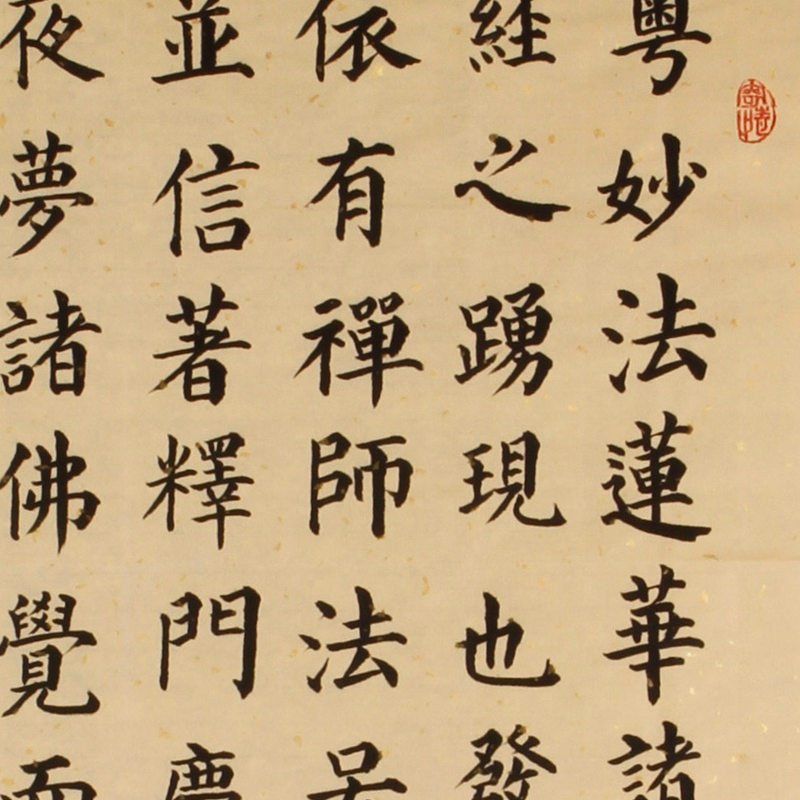 粤妙法蓮華諸
經之踴現也發
依有禪師法
並信著釋門慶
夜夢諸佛覺而